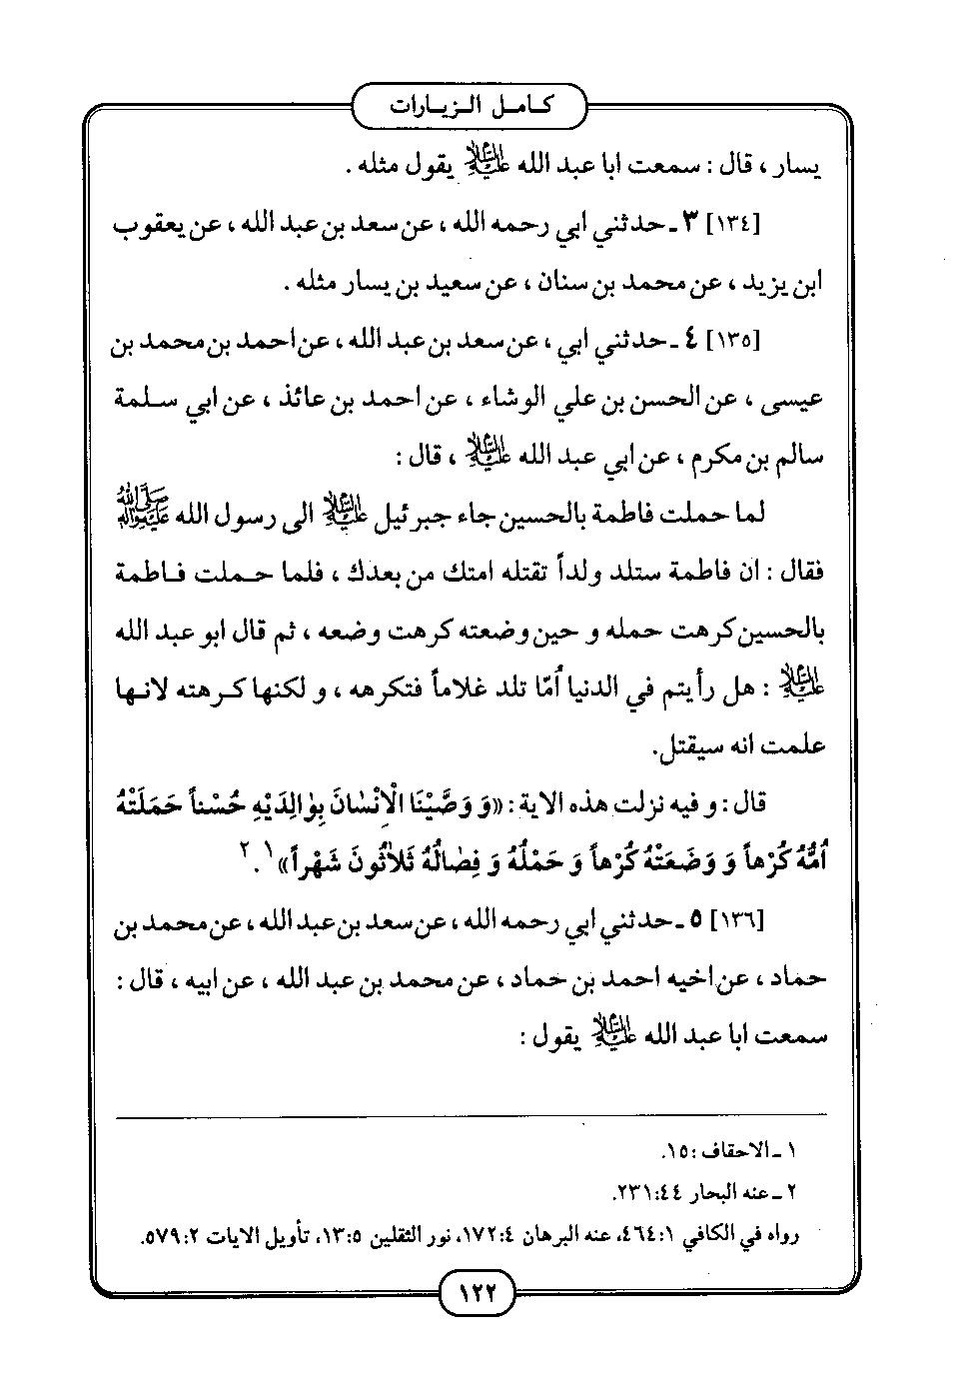 كامل الزيارات
يسار ، قال : سمعت ابا عبد الله عليه السلام يقول مثله .
[١٣٤] ٣ ـ حدثني ابي رحمه الله ، عن سعد بن عبد الله ، عن يعقوب
ابن يزيد ، عن محمد بن سنان ، عن سعيد بن يسار مثله .
[١٣٥] ٤ ـ حدثني ابي ، عن سعد بن عبد الله ، عن احمد بن محمد بن
عيسى ، عن الحسن بن علي الوشاء ، عن احمد بن عائذ ، عن ابي سلمة
سالم بن مكرم ، عن ابي عبد الله عليه السلام ، قال :
لما حملت فاطمة بالحسين جاء جبرئيل عليه السلام الى رسول الله صلى الله عليه وآله
فقال : ان فاطمة ستلد ولداً تقتله امتك من بعدك ، فلما حملت فاطمة
بالحسين كرهت حمله و حين وضعته كرهت وضعه ، ثم قال ابو عبد الله
عليه السلام : هل رأيتم في الدنيا اُمّا تلد غلاماً فتكرهه ، و لكنها كرهته لانها
علمت انه سيقتل.
قال : و فيه نزلت هذه الاية : «وَ وَصَّيْنَا الْاِنْسٰانَ بِوٰالِدَيْهِ حُسْناً حَمَلَتْهُ
اُمُّهُ كُرْهاً وَ وَضَعَتْهُ كُرْهاً وَ حَمْلُهُ وَ فِصٰالُهُ ثَلاٰثُونَ شَهْراً»١.٢
[١٣٦] ٥ ـ حدثني ابي رحمه الله ، عن سعد بن عبد الله ، عن محمد بن
حماد ، عن اخيه احمد بن حماد ، عن محمد بن عبد الله ، عن ابيه ، قال :
سمعت ابا عبد الله عليه السلام يقول :
١ ـ الاحقاف : ١٥.
٢ ـ عنه البحار ٤٤:٢٣١.
رواه في الكافي ١:٤٦٤، عنه البرهان ٤:١٧٢، نور الثقلين ٥:١٣، تأويل الايات ٢:٥٧٩.
١٢٢